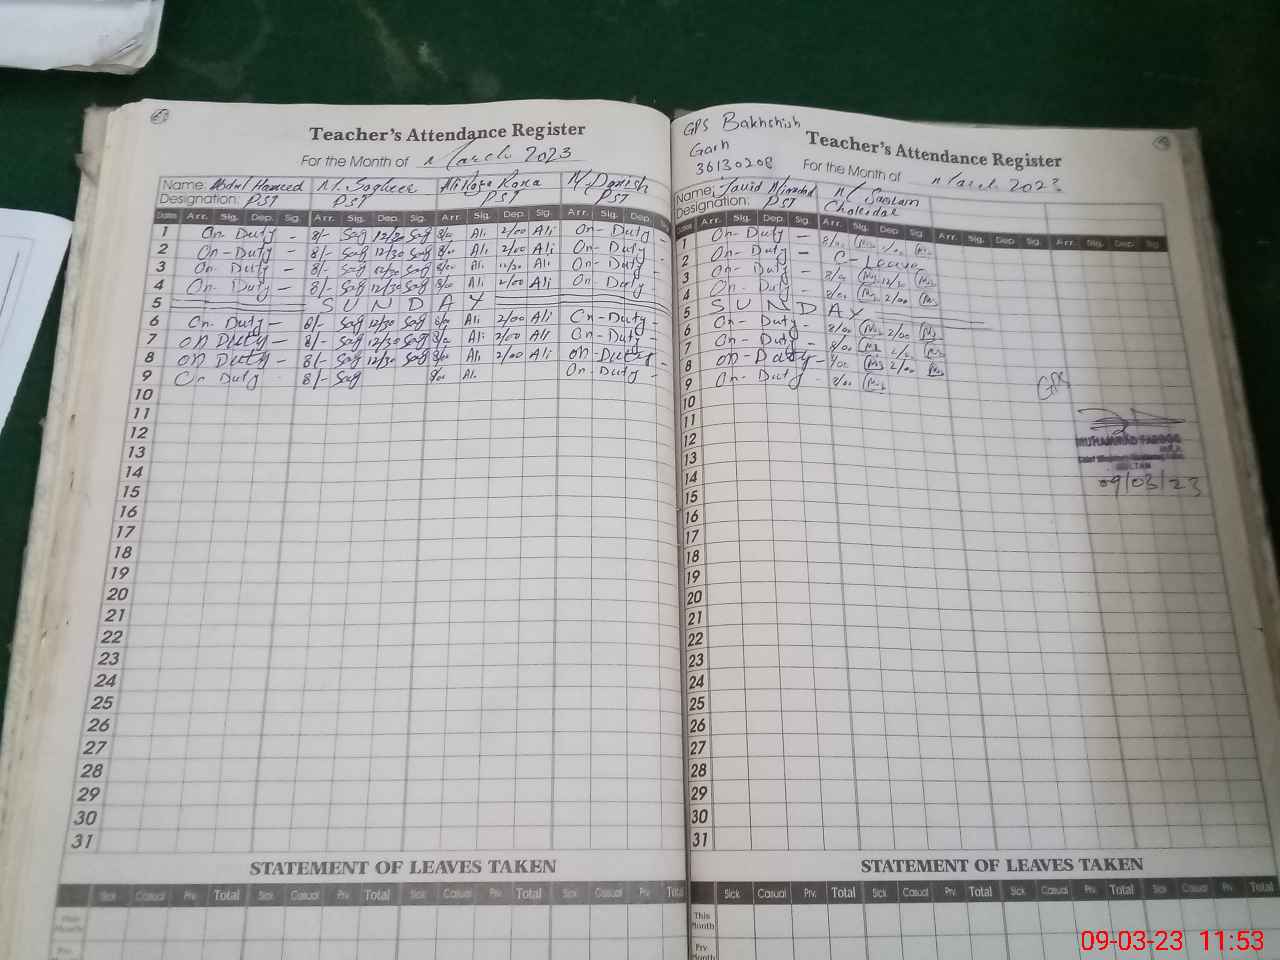 Teacher's Attendance Register
For the Month of March 2023
Name: Abdul Hameed M. Sagheer Ali Raza Rana M. Danish
Designation: PST PST PST PST
Dates Arr. Sig. Dep. Sig. Arr. Sig. Dep. Sig. Arr. Sig. Dep. Sig. Arr. Sig. Dep. Sig.
1 On Duty - 8/- Sag 12/30 Sag 8/00 Ali 2/00 Ali On-Duty -
2 On-Duty - 8/- Sag 12/30 Sag 8/00 Ali 2/00 Ali On-Duty -
3 On Duty - 8/- Sag 12/30 Sag 8/00 Ali 12/30 Ali On-Duty
4 On Duty - 8/- Sag 12/30 Sag 8/00 Ali 2/00 Ali On Duty -
5 SUNDAY
6 On Duty - 8/- Sag 12/30 Sag 8/00 Ali 2/00 Ali On-Duty -
7 On Duty - 8/- Sag 12/30 Sag 8/00 Ali 2/00 Ali On-Duty -
8 On Duty - 8/- Sag 12/30 Sag 8/00 Ali 2/00 Ali On-Duty -
9 On Duty 8/- Sag 8/00 Ali On-Duty -
10
11
12
13
14
15
16
17
18
19
20
21
22
23
24
25
26
27
28
29
30
31
STATEMENT OF LEAVES TAKEN
Sick Casual Prv. Total Sick Casual Prv. Total Sick Casual Prv. Total Sick Casual Prv. Total
This Month
Prv.
GPS Bakhshish
Garh
36130208
Teacher's Attendance Register
For the Month of March 2023
Name: Javid M. Saalam
Designation: PST Chokidar
Dates Arr. Sig. Dep. Sig. Arr. Sig. Dep. Sig. Arr. Sig. Dep. Sig. Arr. Sig. Dep. Sig.
1 On-Duty - 8/00 2/00
2 On-Duty - C-Leave
3 On-Duty - 8/00 12/30
4 On-Duty - 8/00 2/00
5 SUNDAY
6 On-Duty - 8/00 2/00
7 On-Duty - 8/00 2/00
8 On-Duty - 8/00 2/00
9 On-Duty - 8/00
10
11
12
13
14
15
16
17
18
19
20
21
22
23
24
25
26
27
28
29
30
31
GPS
MUHAMMAD FAROOQ
MULTAN
09/03/23
STATEMENT OF LEAVES TAKEN
Sick Casual Prv. Total Sick Casual Prv. Total Sick Casual Prv. Total Sick Casual Prv. Total
This Month
Prv Month
09-03-23 11:53